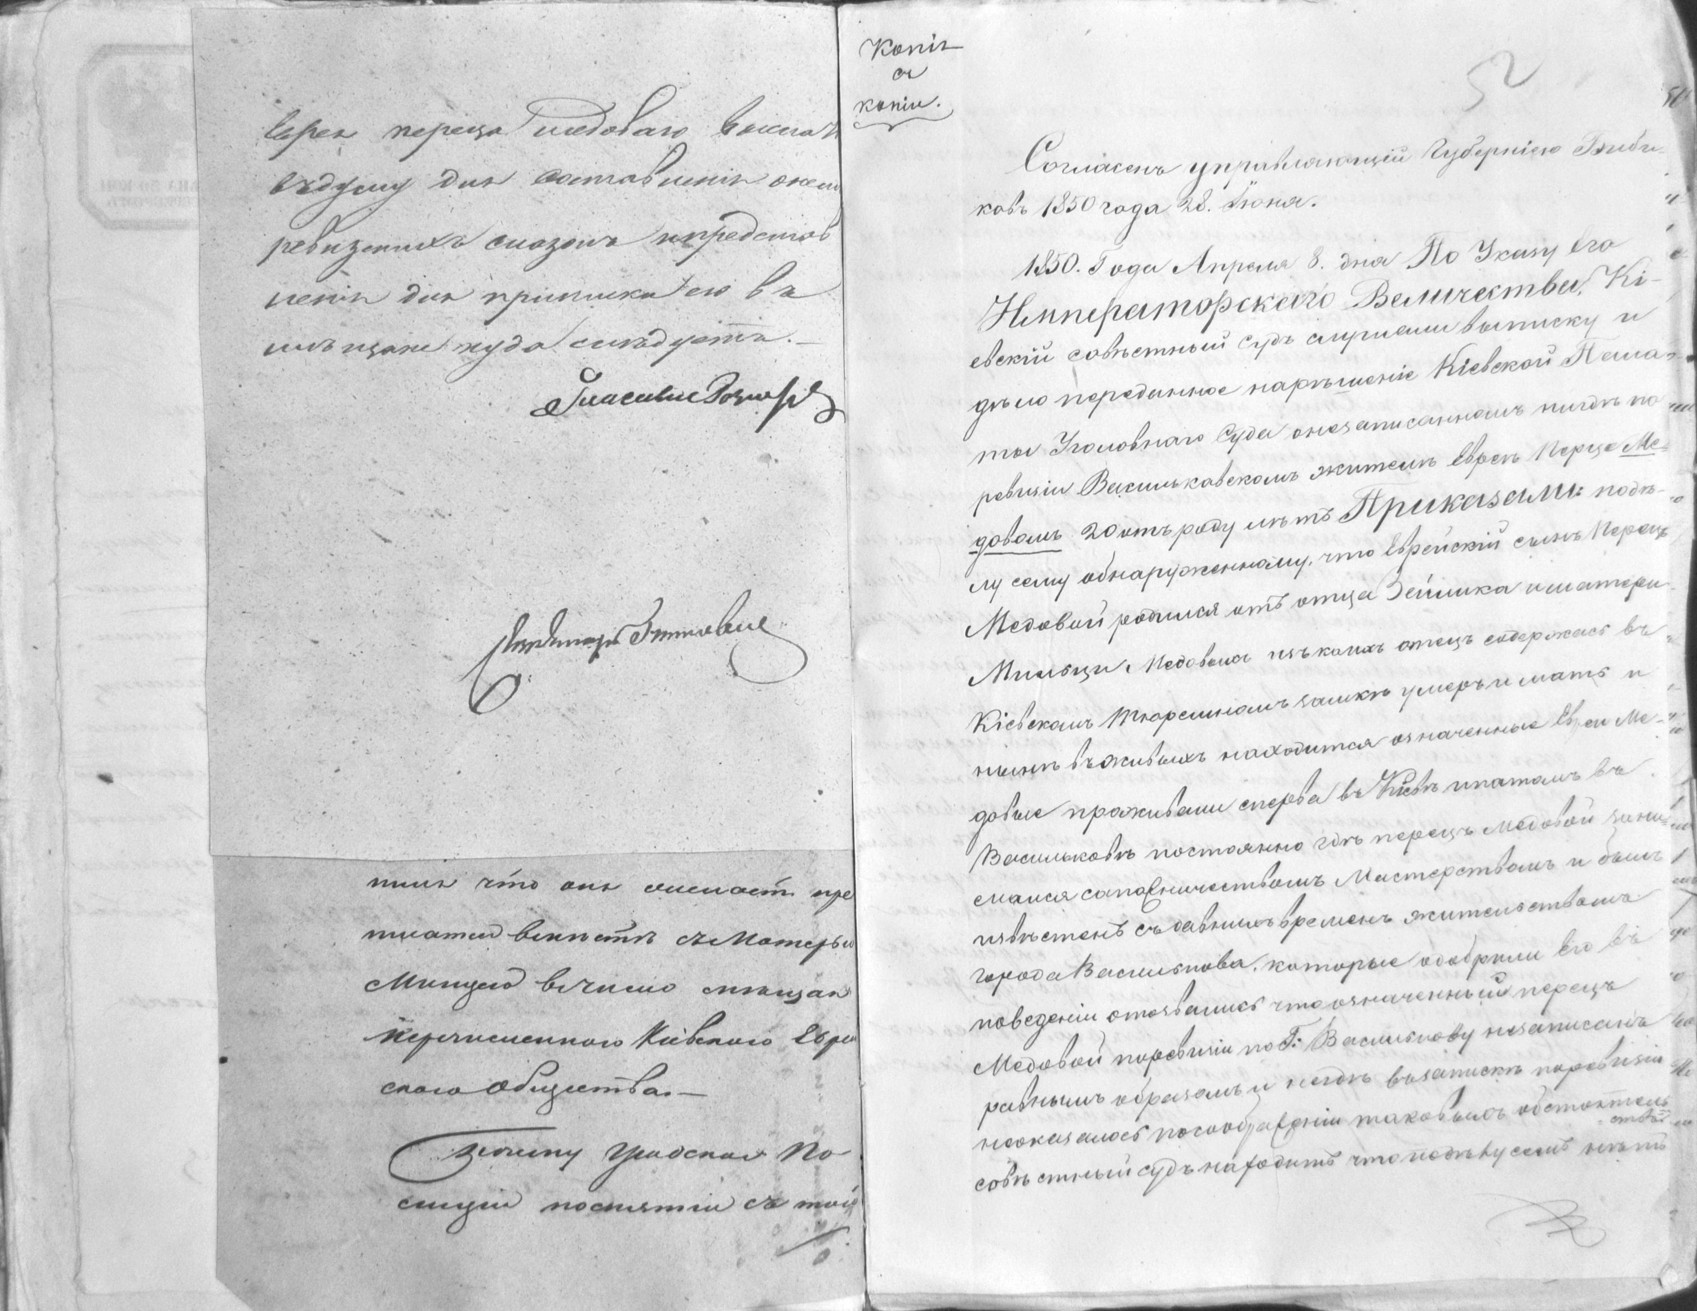 Еврея переца медоваго выслать
въ думу для составленія окон
ревизскихъ сказокъ и представ
ленія для приписки его въ
мѣщане куда слѣдуетъ. —
Гласный
Секретарь
нилъ что онъ желаетъ при
писатся вмѣстѣ съ Матерью
Минцею въ число мѣщан
перечисленнаго Кіевского Евреи
скаго общества. —
По сему Градская По
лиціи съ тѣмъ
Копія
съ
копіи.
52
Согласенъ управляющій Губерніею Биби-
ковъ 1850 года 28. Іюня.
1850. Года Апреля 8. дня По Указу Его
Императорскаго Величества, Кі-
евскій совѣстный Судъ слушали выписку и
дѣло переданное на рѣшеніе Кіевской Пала-
ты Уголовнаго Суда о незаписанномъ нигдѣ по
ревизіи Васильковскомъ жителѣ Евреѣ Перце Ме-
довомъ 20 отъ роду лѣтъ Приказали: по дѣ-
лу сему обнаруженному, что Еврейскій сынъ Перецъ
Медовой родился отъ отца Зейлика и матери
Минци Медовыхъ изъ коихъ отецъ содержась въ
Кіевскомъ тюремномъ замкѣ умеръ и мать и
нынѣ въ живыхъ находится означенные Евреи Ме-
довые проживали сперва въ Кіевѣ и потомъ въ
Васильковѣ постоянно гдѣ перецъ Медовой зани-
мался сапожничествомъ Мастерствомъ и былъ
извѣстенъ съ давнихъ временъ жительствомъ
города Василькова, которые одобрили его въ
поведеніи отозвались что означенный перецъ
Медовой по ревизіи по Г. Василькову не записанъ
равнымъ образомъ и нигдѣ въ запискѣ по ревизіи
не оказалось по соображеніи таковыхъ обстоятель
ствъ
совѣстный судъ находитъ что по дѣлу сему нѣтъ